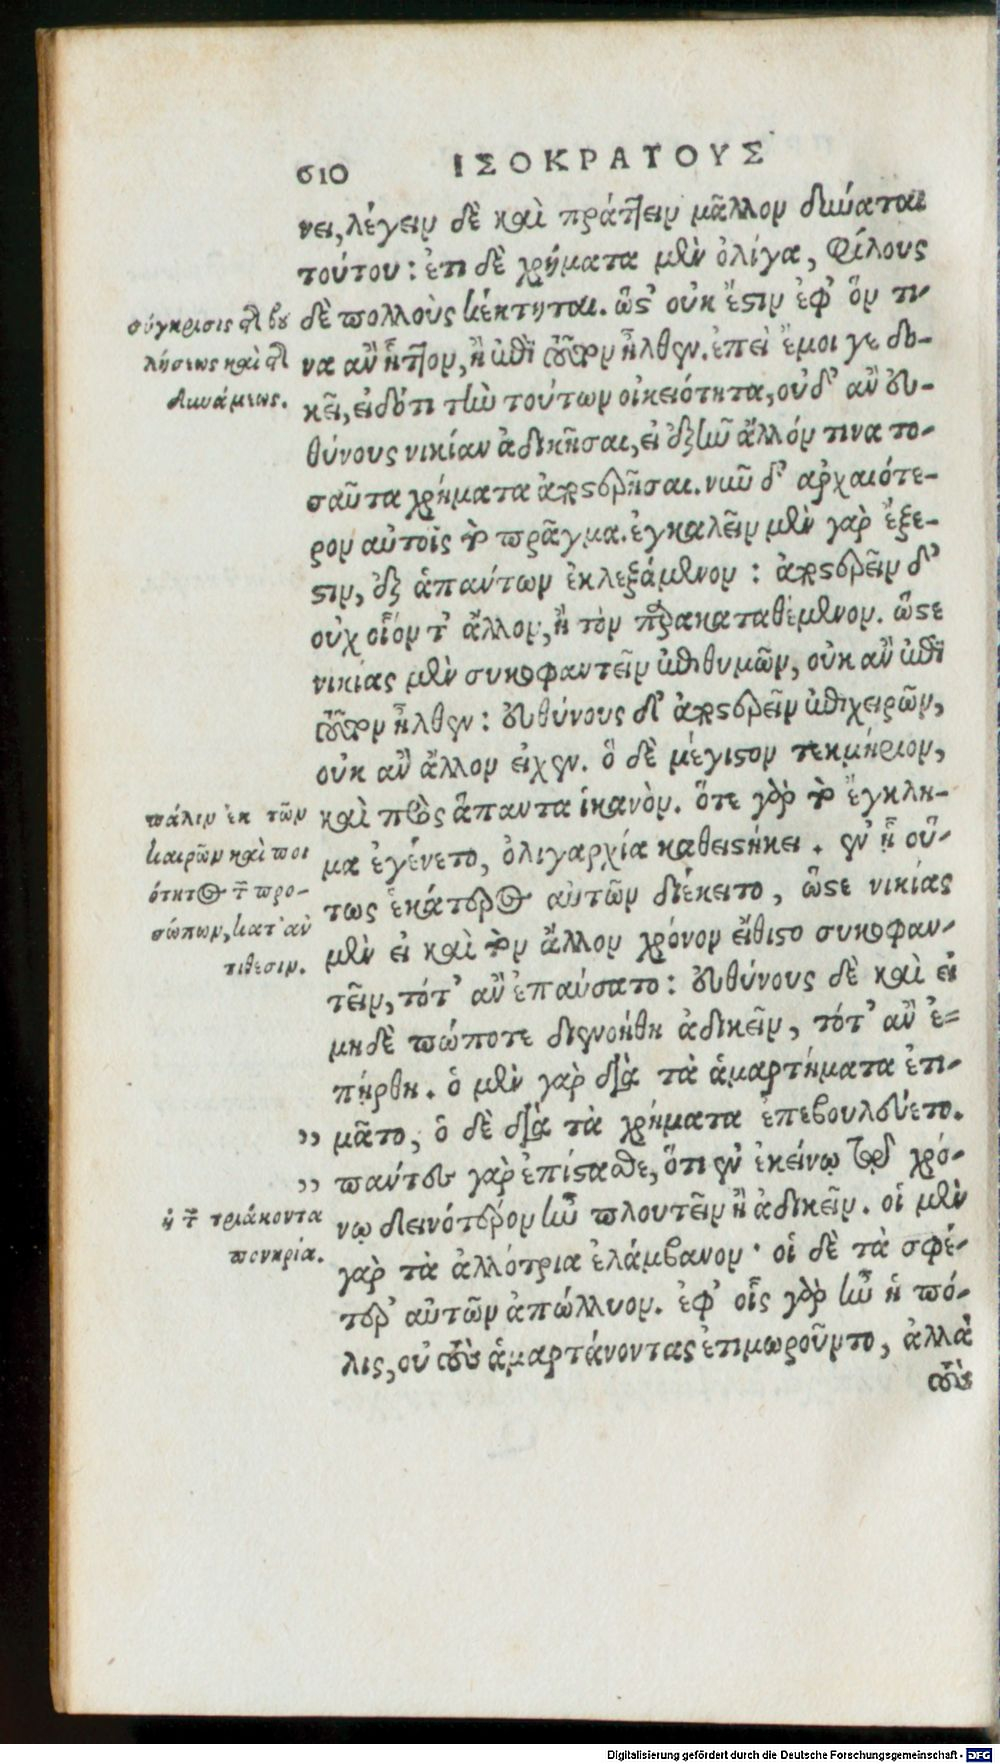 610 ΙΣΟΚΡΑΤΟΥΣ
νει, λέγειν δὲ καὶ πράττειν μᾶλλον δύναται
τούτου: ἔτι δὲ χρήματα μὲν ὀλίγα, φίλους
δὲ πολλοὺς κέκτηται. ὥστ' οὐκ ἔστιν ἐφ' ὅν τι-
να ἂν ἧττον, ἢ ἐπὶ τοῦτον ἦλθεν. ἐπεὶ ἔμοι γε δο-
κεῖ, εἰδότι τὴν τούτων οἰκειότητα, οὐδ' ἂν Εὐ-
θύνους νικίαν ἀδικῆσαι, εἰ ἐξῆν ἄλλόν τινα το-
σαῦτα χρήματα ἀποστερῆσαι. νῦν δ' ἀρχαιότε-
ρον αὐτοῖς τὸ πρᾶγμα. ἐγκαλεῖν μὲν γὰρ ἔξε-
στιν, ἐξ ἁπάντων ἐκλεξάμενον: ἀποστερεῖν δ'
οὐχ οἷόν τ' ἄλλον, ἢ τὸν παρακαταθέμενον. ὥστε
νικίας μὲν συκοφαντεῖν ἐπιθυμῶν, οὐκ ἂν ἐπὶ
τοῦτον ἦλθεν: Εὐθύνους δ' ἀποστερεῖν ἐπιχειρῶν,
οὐκ ἂν ἄλλον εἶχεν. ὃ δὲ μέγιστον τεκμήριον,
καὶ πρὸς ἅπαντα ἱκανὸν. ὅτε γὰρ τὸ ἔγκλη-
μα ἐγένετο, ὀλιγαρχία καθειστήκει. ἐν ᾗ οὕ-
τως ἑκάτερος αὐτῶν διέκειτο, ὥστε νικίας
μὲν εἰ καὶ τὸν ἄλλον χρόνον εἴθιστο συκοφαν-
τεῖν, τότ' ἂν ἐπαύσατο: Εὐθύνους δὲ καὶ εἰ
μηδὲ πώποτε διενοήθη ἀδικεῖν, τότ' ἂν ἐ-
πήρθη. ὁ μὲν γὰρ διὰ τὰ ἁμαρτήματα ἐτι-
” μᾶτο, ὁ δὲ διὰ τὰ χρήματα ἐπεβουλεύετο.
” πάντες γὰρ ἐπίστασθε, ὅτι ἐν ἐκείνῳ τῷ χρό-
νῳ δεινότερον ἦν πλουτεῖν ἢ ἀδικεῖν. οἱ μὲν
γὰρ τὰ ἀλλότρια ἐλάμβανον· οἱ δὲ τὰ σφέ-
τερ' αὐτῶν ἀπώλλυον. ἐφ' οἷς γὰρ ἦν ἡ πό-
λις, οὐ τοὺς ἁμαρτάνοντας ἐτιμωροῦντο, ἀλλὰ
τοὺς
σύγκρισις τῆς βου
λήσεως καὶ τῆς
δυνάμεως.
πάλιν ἐκ τῶν
καιρῶν καὶ ποι
ότητος τῶν προ-
σώπων, κατ' ἀν
τίθεσιν.
ἡ τῶν τριάκοντα
πονηρία.
Digitalisierung gefördert durch die Deutsche Forschungsgemeinschaft - DFG